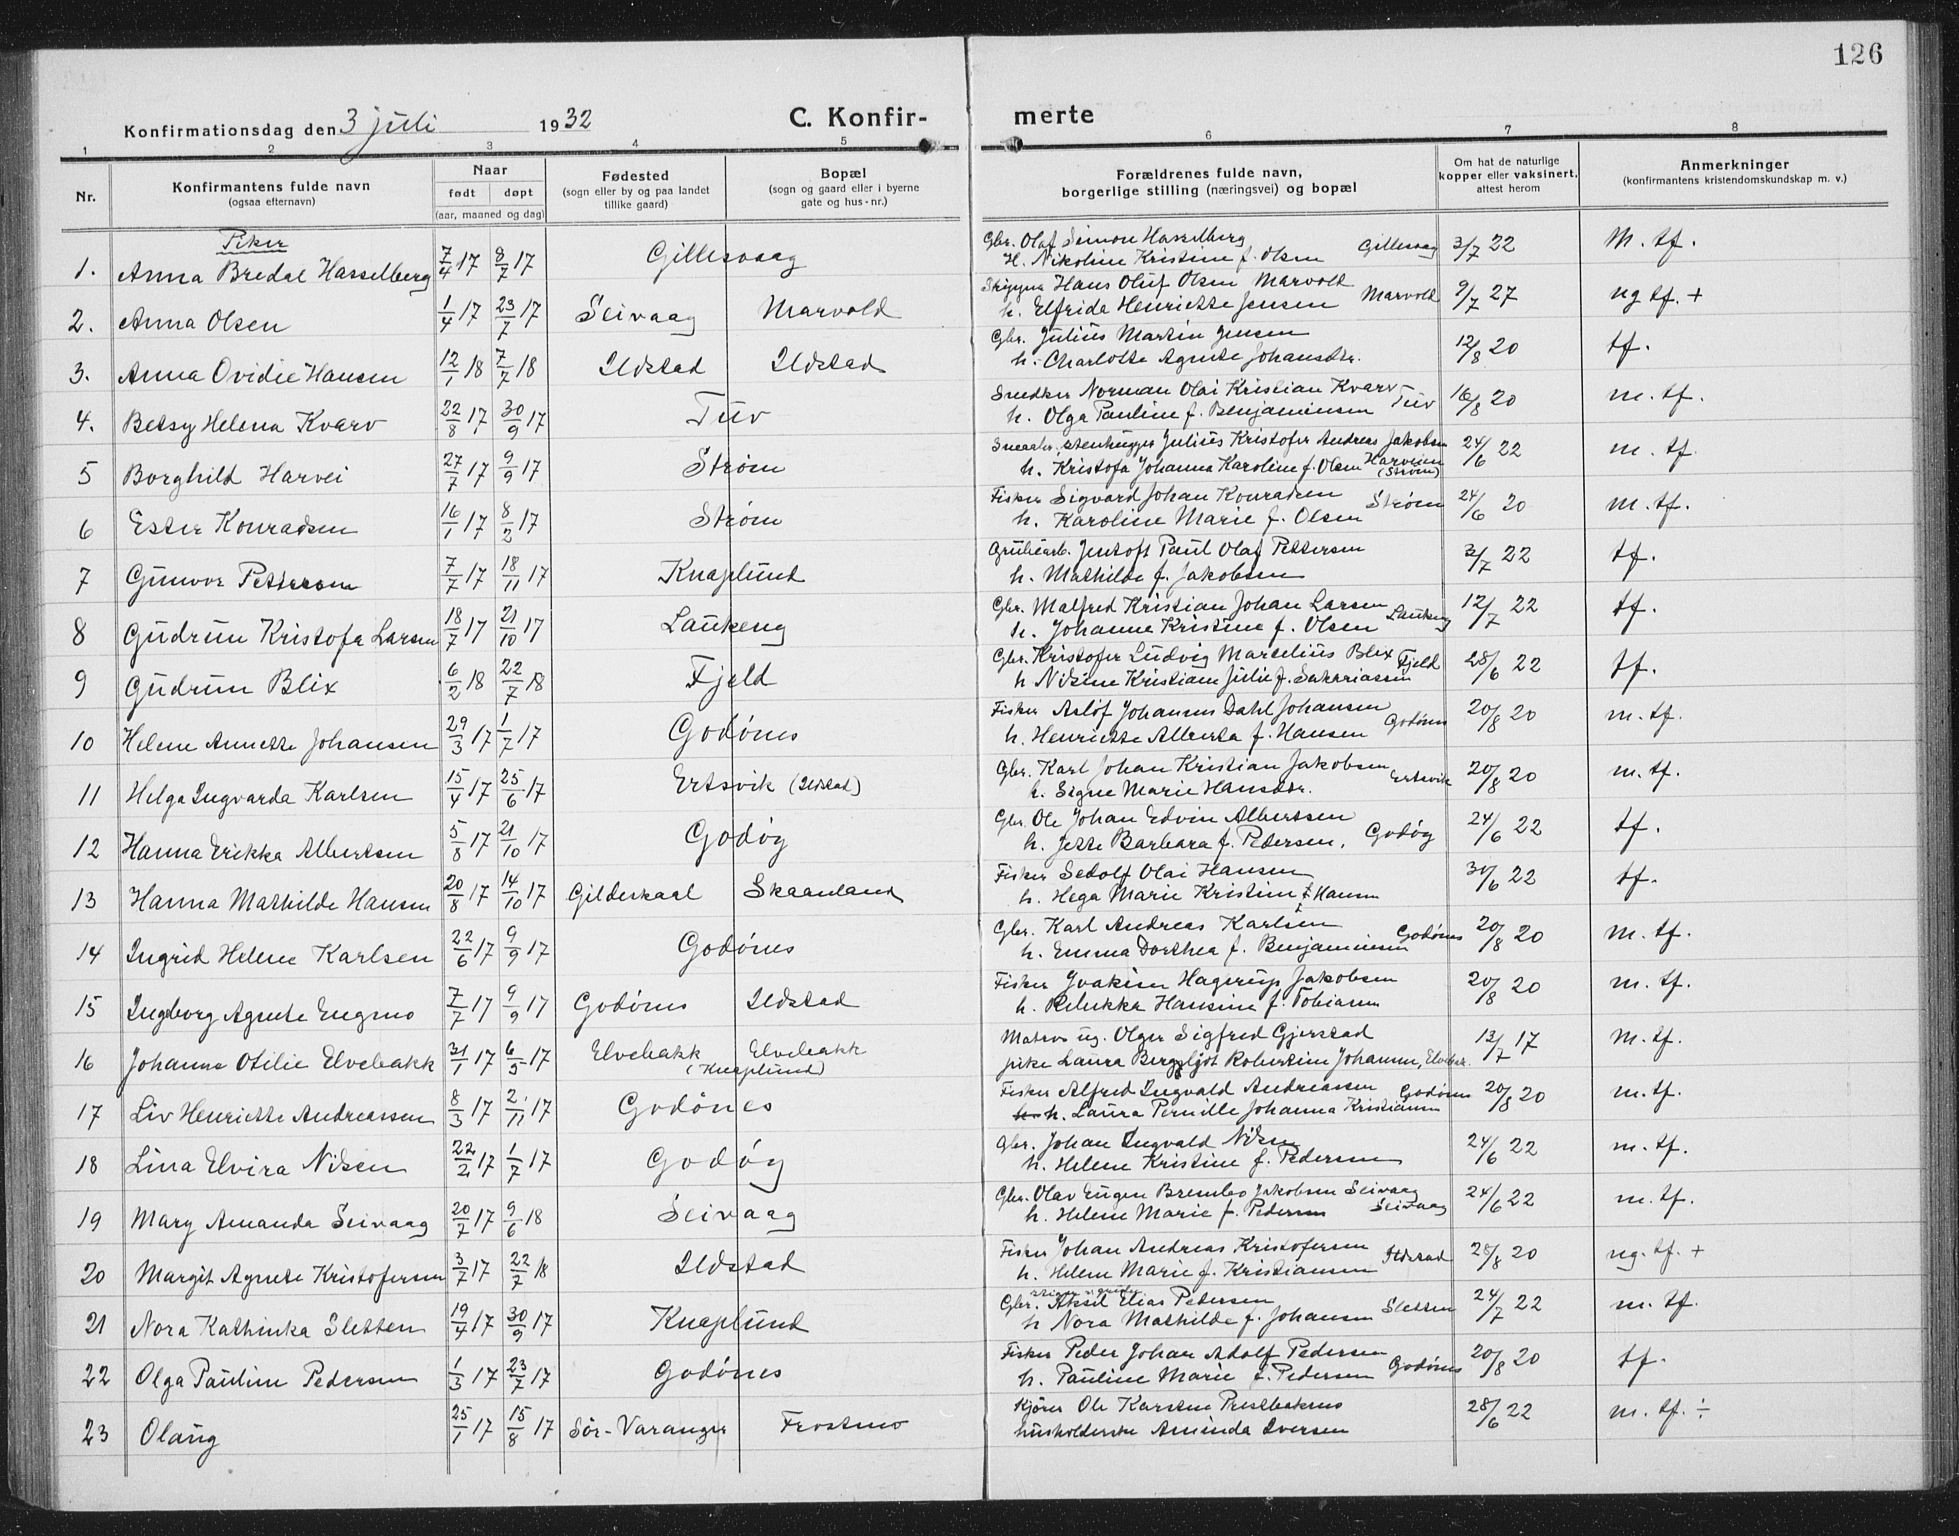 126
Konfirmationsdag den 3 juli 1932 C. Konfir- merte
1 2 3 4 5 6 7 8
Nr. Konfirmantens fulde navn (ogsaa efternavn) Naar født døpt (aar, maaned og dag) Fødested (sogn eller by og paa landet tillike gaard) Bopæl (sogn og gaard eller i byerne gate og hus-nr.) Forældrenes fulde navn, borgerlige stilling (næringsvei) og bopæl Om hat de naturlige kopper eller vaksinert, attest herom Anmerkninger (konfirmantens kristendomskundskap m. v.)
Piker
1. Anna Bredal Hasselberg 7/4 17 8/7 17 Gillesvaag Gbr. Olaf Simon Hasselberg
H. Nikoline Kristine f. Olsen Gillesvaag 3/7 22 M. tf.
2. Anna Olsen 1/4 17 23/7 17 Seivaag Marvold Hans Oluf Olsen Marvold
h. Elfrida Henriette Jensen Marvold 9/7 27 ng tf. +
3. Anna Ovidie Hansen 12/1 18 7/7 18 Ildstad Ildstad Gbr. Julius Martin Jensen
h. Charlotte Agnete Johansdtr. 12/8 20 tf.
4. Betsy Helena Kvarv 22/8 17 30/9 17 Tuv Snedker Norman Olai Kristian Kvarv
h. Olga Pauline f. Benjaminsen Tuv 16/8 20 m. tf.
5 Borghild Harvei 27/7 17 9/9 17 Strøm stenhugger Julius Kristofer Andreas Jakobsen
h. Kristofa Johanna Karoline f. Olsen Harveien (Strøm) 24/6 22 m. tf.
6 Ester Konradsen 16/1 17 8/2 17 Strøm Fisker Sigvard Johan Konradsen
h. Karoline Marie f. Olsen Strøm 24/6 20 m. tf.
7 Gunvor Pettersen 7/7 17 18/11 17 Knaplund Grubearb. Jentoft Paul Olaf Pettersen
h. Mathilde f. Jakobsen 3/7 22 tf.
8 Gudrun Kristofa Larsen 18/7 17 21/10 17 Laukeng Gbr. Malfred Kristian Johan Larsen
h. Johanne Kristine f. Olsen Laukeng 12/7 22 tf.
9 Gudrun Blix 6/2 18 22/7 18 Fjeld Gbr. Kristofer Ludvig Marselius Blix Fjeld
h Nilsine Kristiane Julie f. Sakariassen 28/6 22 tf.
10 Helene Annette Johansen 29/3 17 1/7 17 Godønes Fisker Aslof Johannes Dahl Johansen
h. Henriette Alberta f. Hansen Godønes 20/8 20 m. tf.
11 Helga Ingvarda Karlsen 15/4 17 25/6 17 Ertsvik (Ildstad) Gbr. Karl Johan Kristian Jakobsen
h. Signe Marie Hansdtr. Ertsvik 20/8 20 m. tf.
12 Hanna Erikka Albertsen 5/8 17 21/10 17 Godøy Gbr. Ole Johan Edvin Albertsen
h. Jette Barbara f. Pedersen, Godøy 24/6 22 tf.
13 Hanna Mathilde Hansen 20/8 17 14/10 17 Gildeskaal Skaanland Fisker Sedolf Olai Hansen
h. Hega Marie Kristine f. Hansen 30/6 22 tf.
14 Ingrid Helene Karlsen 22/6 17 9/9 17 Godønes Gbr. Karl Andreas Karlsen
h. Emma Dorthea f. Benjaminsen Godønes 20/8 20 m. tf.
15 Ingeborg Agnete Engmo 7/7 17 9/9 17 Godønes Ildstad Fisker Joakim Hagerup Jakobsen
h. Rebekka Hansine f. Tobiassen 20/8 20 m. tf.
16 Johanne Otilie Elvebakk 31/1 17 6/5 17 Elvebakk Elvebakk (Knaplund) Matros ug. Olger Sigfred Gjerstad
pike Laura Bergljot Robertine Johansen, Elvebak. 13/7 17 m. tf.
17 Liv Henriette Andreassen 8/3 17 2/11 17 Godönes Fisker Alfred Ingvald Andreassen Godønes
h. Laura Pernille Johanna Kristiansen 20/8 20 m. tf.
18 Lina Elvira Nilsen 22/2 17 1/7 17 Godøy Gbr. Johan Ingvald Nilsen
h. Helene Kristine f. Pedersen 24/6 22 m. tf.
19 Mary Amanda Seivaag 20/7 17 9/6 18 Seivaag Gbr. Olav Eugen Brembo Jakobsen Seivaag
h. Helene Marie f. Pedersen Seivaag 24/6 22 m. tf.
20 Margit Agnete Kristofersen 3/7 17 22/7 18 Ildstad Fisker Johan Andreas Kristofersen
h. Helene Marie f. Kristiansen Ildstad 28/8 20 ng. tf. +
21 Nora Kathinka Sletten 19/4 17 30/9 17 Knaplund Gbr. Aksel Elias Pedersen
h Nora Mathilde f. Johansen Sletten 24/7 22 m. tf.
22 Olga Pauline Pedersen 1/3 17 23/7 17 Godönes Fisker Peder Johan Adolf Pedersen
h. Pauline Marie f. Pedersen Godønes 20/8 20 tf.
23 Olaug 25/1 17 15/8 17 Sör-Varanger Frostmo Kjører Ole Karsten Prestbakmo
husholderske Aminda Iversen 28/6 22 m. tf. ÷